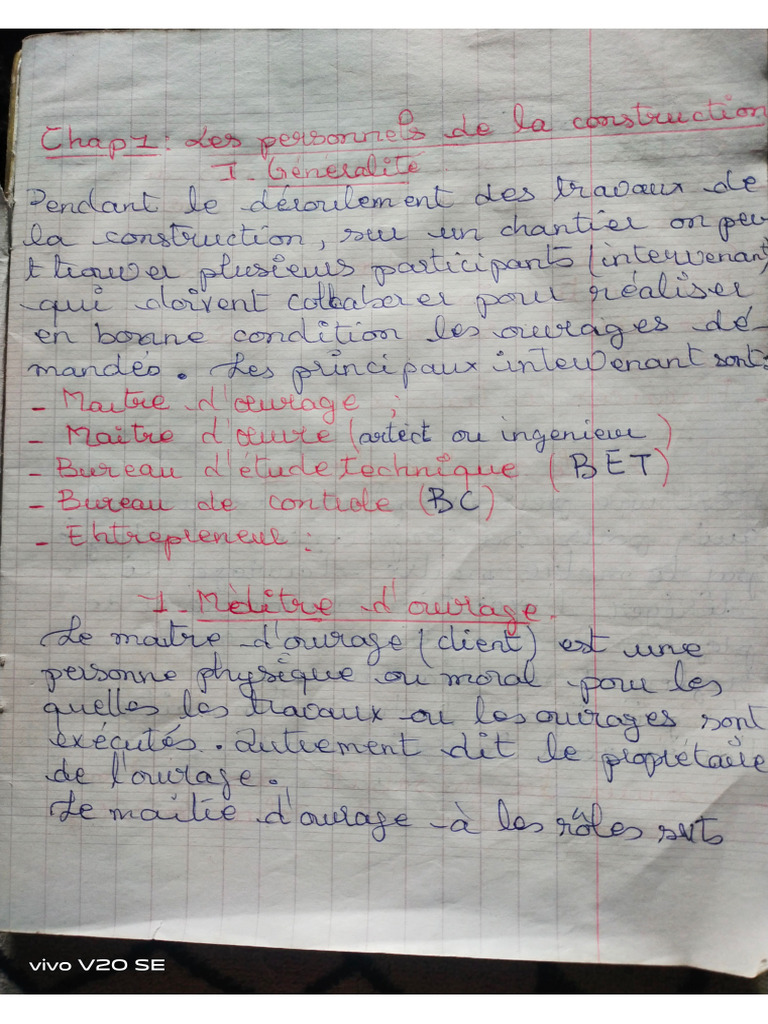 Chap1: Les personnels de la construction
I. Généralité
Pendant le déroulement des travaux de
la construction, sur un chantier on peu
t trouver plusieurs participants (intervenant)
qui doivent collaborer pour réaliser
en bonne condition les ouvrages de-
mandés. Les principaux intervenant sont:
- Maitre d'ouvrage ;
- Maître d'œuvre (artect ou ingenieur)
- Bureau d'étude technique (BET)
- Bureau de controle (BC)
- Entrepreneur :
1. Maître d'ouvrage.
Le maitre d'ouvrage (client) est une
personne physique ou moral pour les
quelles les travaux ou les ouvrages sont
exécutés. Autrement dit le propriétaire
de l'ouvrage.
Le maitre d'ouvrage à les rôles svts
vivo V20 SE